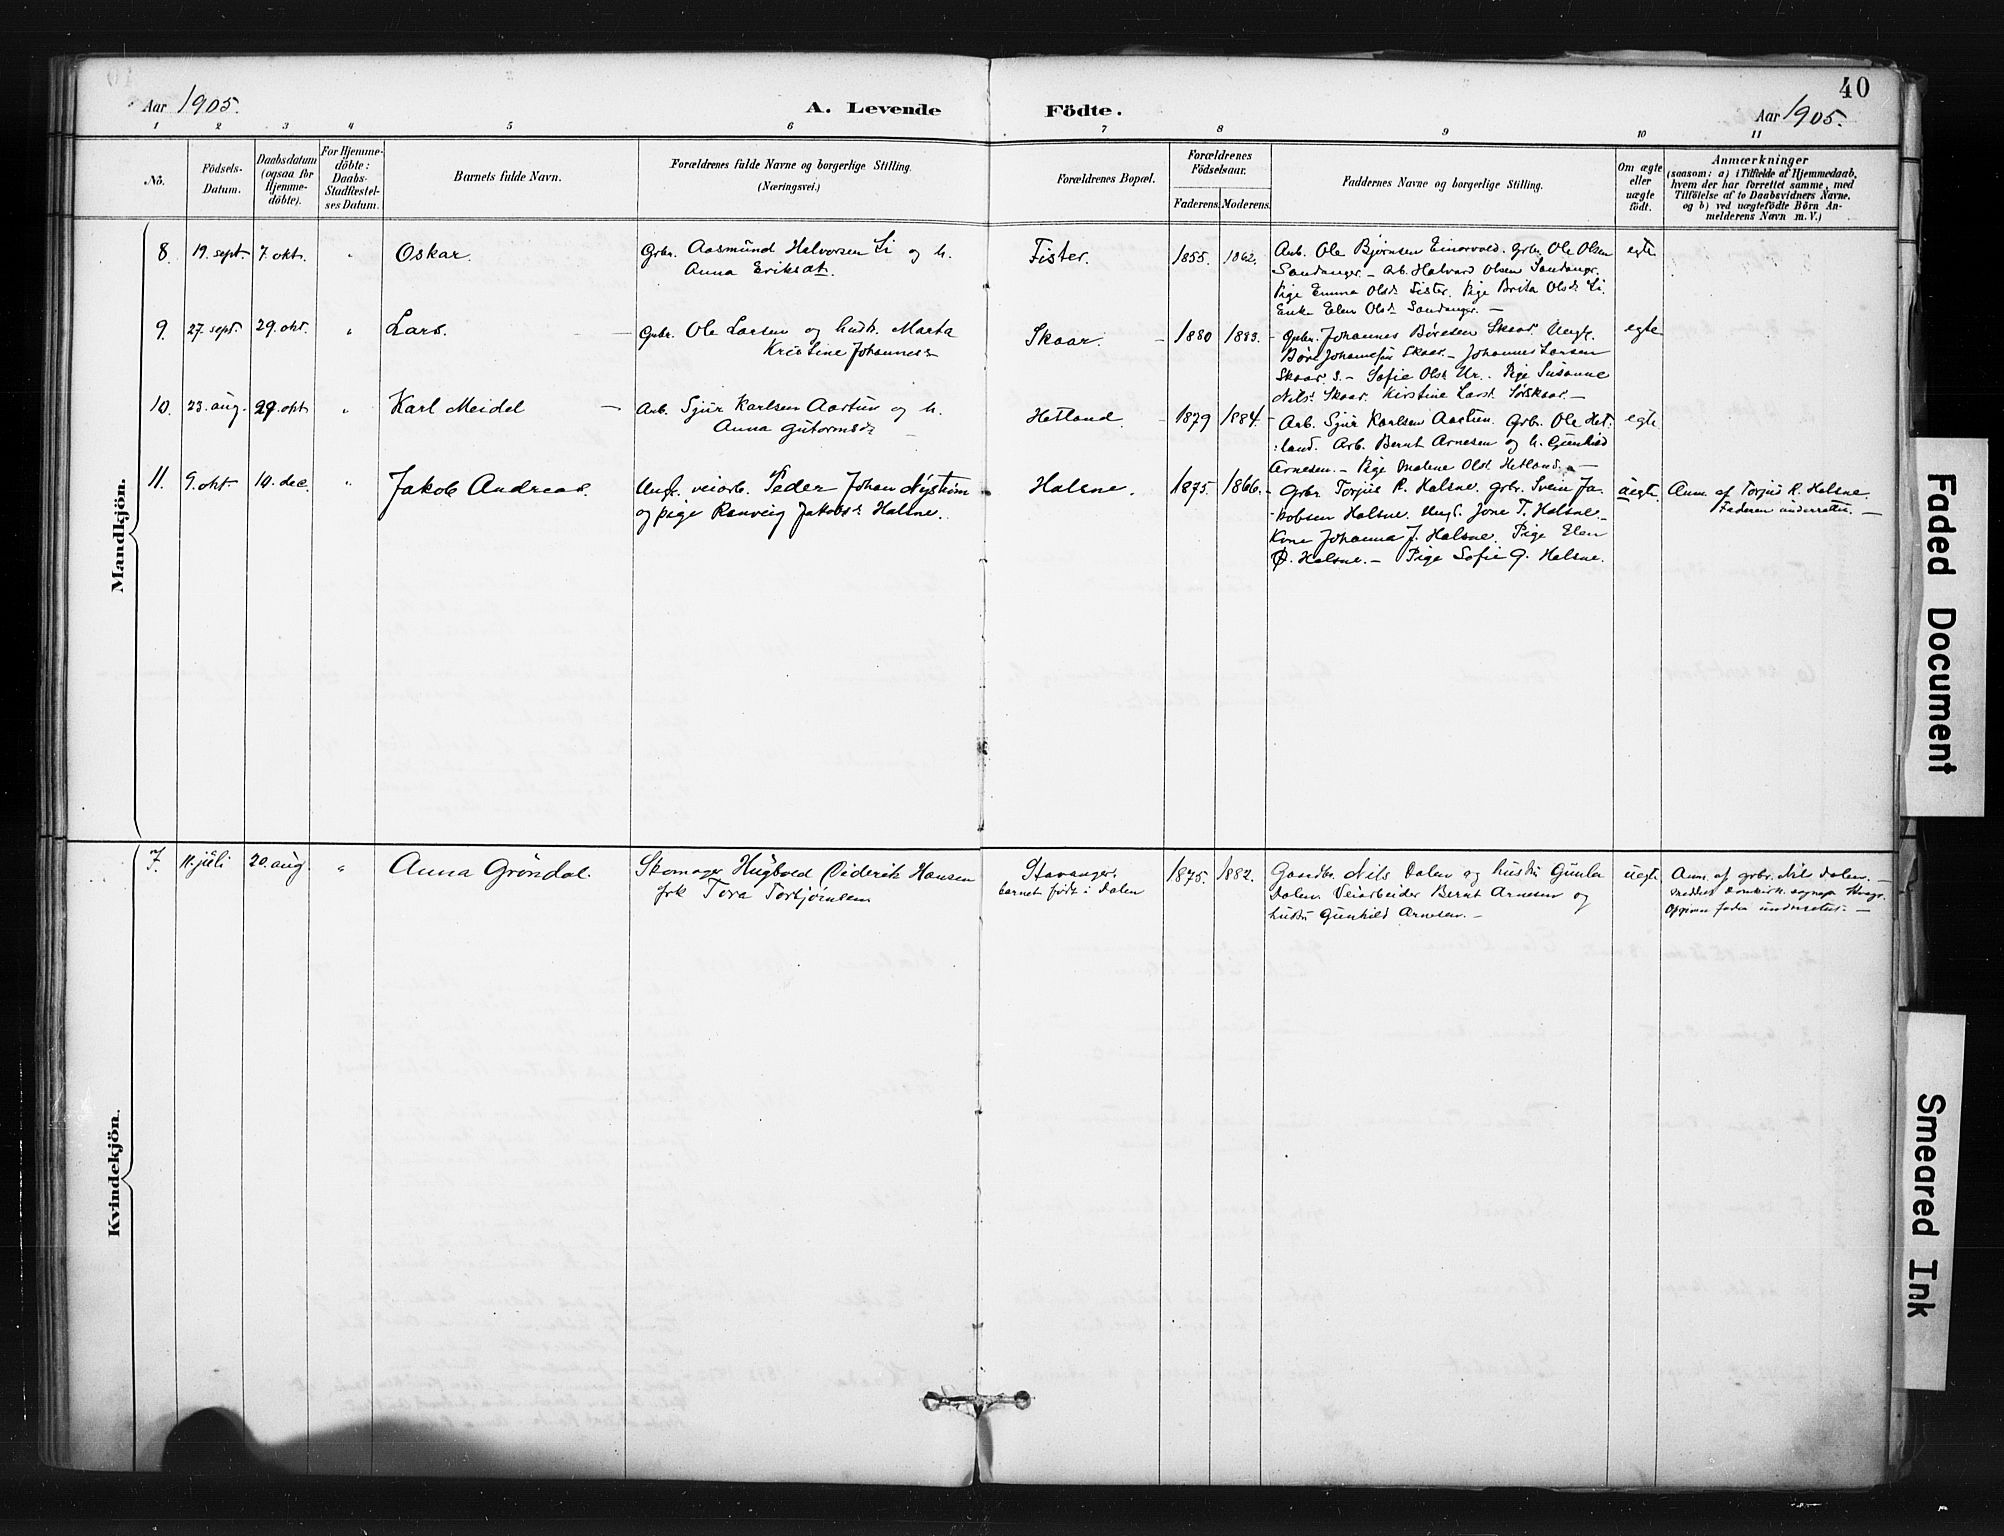 40
Aar 1905.
A. Levende Födte.
Aar 1905.
1 2 3 4 5 6 7 8 9 10 11
No.
Födsels-
Datum.
Daabsdatum
(ogsaa for
Hjemme-
döbte).
For Hjemme-
döbte:
Daabs-
Stadfestel-
ses Datum.
Barnets fulde Navn.
Forældrenes fulde Navne og borgerlige Stilling.
(Næringsvei.)
Forældrenes Bopæl.
Forældrenes
Födselsaar.
Faderens. Moderens.
Faddernes Navne og borgerlige Stilling.
Om ægte
eller
uægte
födt.
Anmærkninger
(saasom: a) i Tilfælde af Hjemmedaab,
hvem der har forrettet samme, med
Tilföielse af to Daabsvidners Navne,
og b) ved uægtefödte Börn An-
melderens Navn m. V.)
Mandkjön.
8. 19. sept. 7. okt. " Oskar.
Grbr. Aasmund Halvorsen Li og h.
Anna Eriksdt.
Fister. 1855. 1862.
Arb. Ole Bjørnsen Einarvold. Grbr. Ole Olsen
Sandanger. – Arb. Halvard Olsen Sandanger.
Pige Emma Olsd. Fister. Pige Brita Olsd. Li.
Enke Elen Olsd. Sandanger. –
egte
9. 27. sept. 29. okt. " Lars. –
Grbr. Ole Larsen og hudh. Marta
Kristine Johannesd.
Skaar. – 1880 1883.
Grbr. Johannes Børesen Skaar. Ungk.
Børe Johannesen Skaar. – Johannes Larsen
Skaar. S. – Sofie Olsd. Ur. Pige Susanne
Nilsd. Skaar. Kirstine Larsd. Sørskaar. –
egte
10. 23. aug. 29. okt. " Karl Meidel –
Arb. Sjur Karlsen Aartun og h.
Anna Gutormsd. –
Hetland. – 1879 1884.
Arb. Sjur Karlsen Aartun. Grbr. Ole Het-
land. Arb. Bernt Arnesen og h. Gunhild
Arnesen. – Pige Malene Olsd. Hetland. –
egte
11. 9. okt. 10. dec. " Jakob Andreas.
Ungk. veiarb. Peder Johan Nyström
og pige Ranveig Jakobsd. Halsne.
Halsne. 1875. 1866.
Grbr. Torjus R. Halsne. grbr. Svein Ja-
kobsen Halsne. Ungk. Jone T. Halsne. –
Kone Johanna J. Halsne. Pige Elen
Ø. Halsne. – Pige Sofie G. Halsne.
uegte.
Anm. af Torjus R. Halsne.
Faderen underrettet. –
Kvindekjön.
7. 11. juli 20. aug. " Anna Gröndal.
Skomager Hugbold Diderik Hansen
frk Tora Torbjørnsen
Stavanger.
barnet født i Dalen
1875. 1882.
Gaardbr. Nils Dalen og hustru Gunla
Dalen. Veiarbeider Bernt Arnesen og
hustru Gunhild Arnesen. –
uegte
Anm. af grbr. Nils Dalen. –
meddelt domkirk. sognepr. Stvgr.
Opgiven fader underrettet. –
Faded Document
Smeared Ink